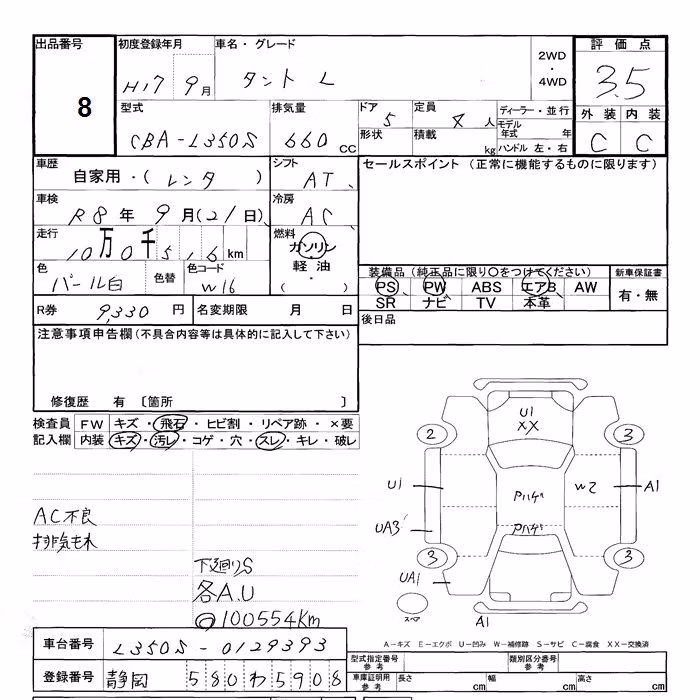 出品番号
8
初度登録年月
H17 9月
車名・グレード
タント L
2WD
・
4WD
評価点
3.5
外装 内装
C C
型式
CBA-L350S
排気量
660 CC
ドア 5
定員 4 人
形状
積載 kg
ディーラー・並行
モデル年式 年
ハンドル 左・右
車歴
自家用・(レンタ )
シフト
AT
セールスポイント (正常に機能するものに限ります)
車検
R8 年 9 月(21日)
冷房
AC
走行
10万0千516 km
燃料
ガソリン
・
軽油
・
( )
色
パール白
色替
色コード
W16
装備品 (純正品に限り○をつけてください)
新車保証書
PS PW ABS エアB AW
SR ナビ TV 本革
有・無
R券 9,330 円
名変期限 月 日
後日品
注意事項申告欄(不具合内容等は具体的に記入して下さい)
修復歴 有 〔箇所 〕
検査員 FW キズ・飛石・ヒビ割・リペア跡・×要
記入欄 内装 キズ・汚レ・コゲ・穴・スレ・キレ・破レ
AC不良
下廻りS
各A.U
◎100554Km
U1
XX
2
3
U1
Pハゲ
W2
A1
UA3
Pハゲ
3
3
UA1
スペア
A1
A-キズ E-エクボ U-凹み W-補修跡 S-サビ C-腐食 XX-交換済
車台番号 L350S-0129393
登録番号 静岡 580わ5908
型式指定番号 参考
類別区分番号 参考
車庫証明用 参考
長さ cm
幅 cm
高さ cm